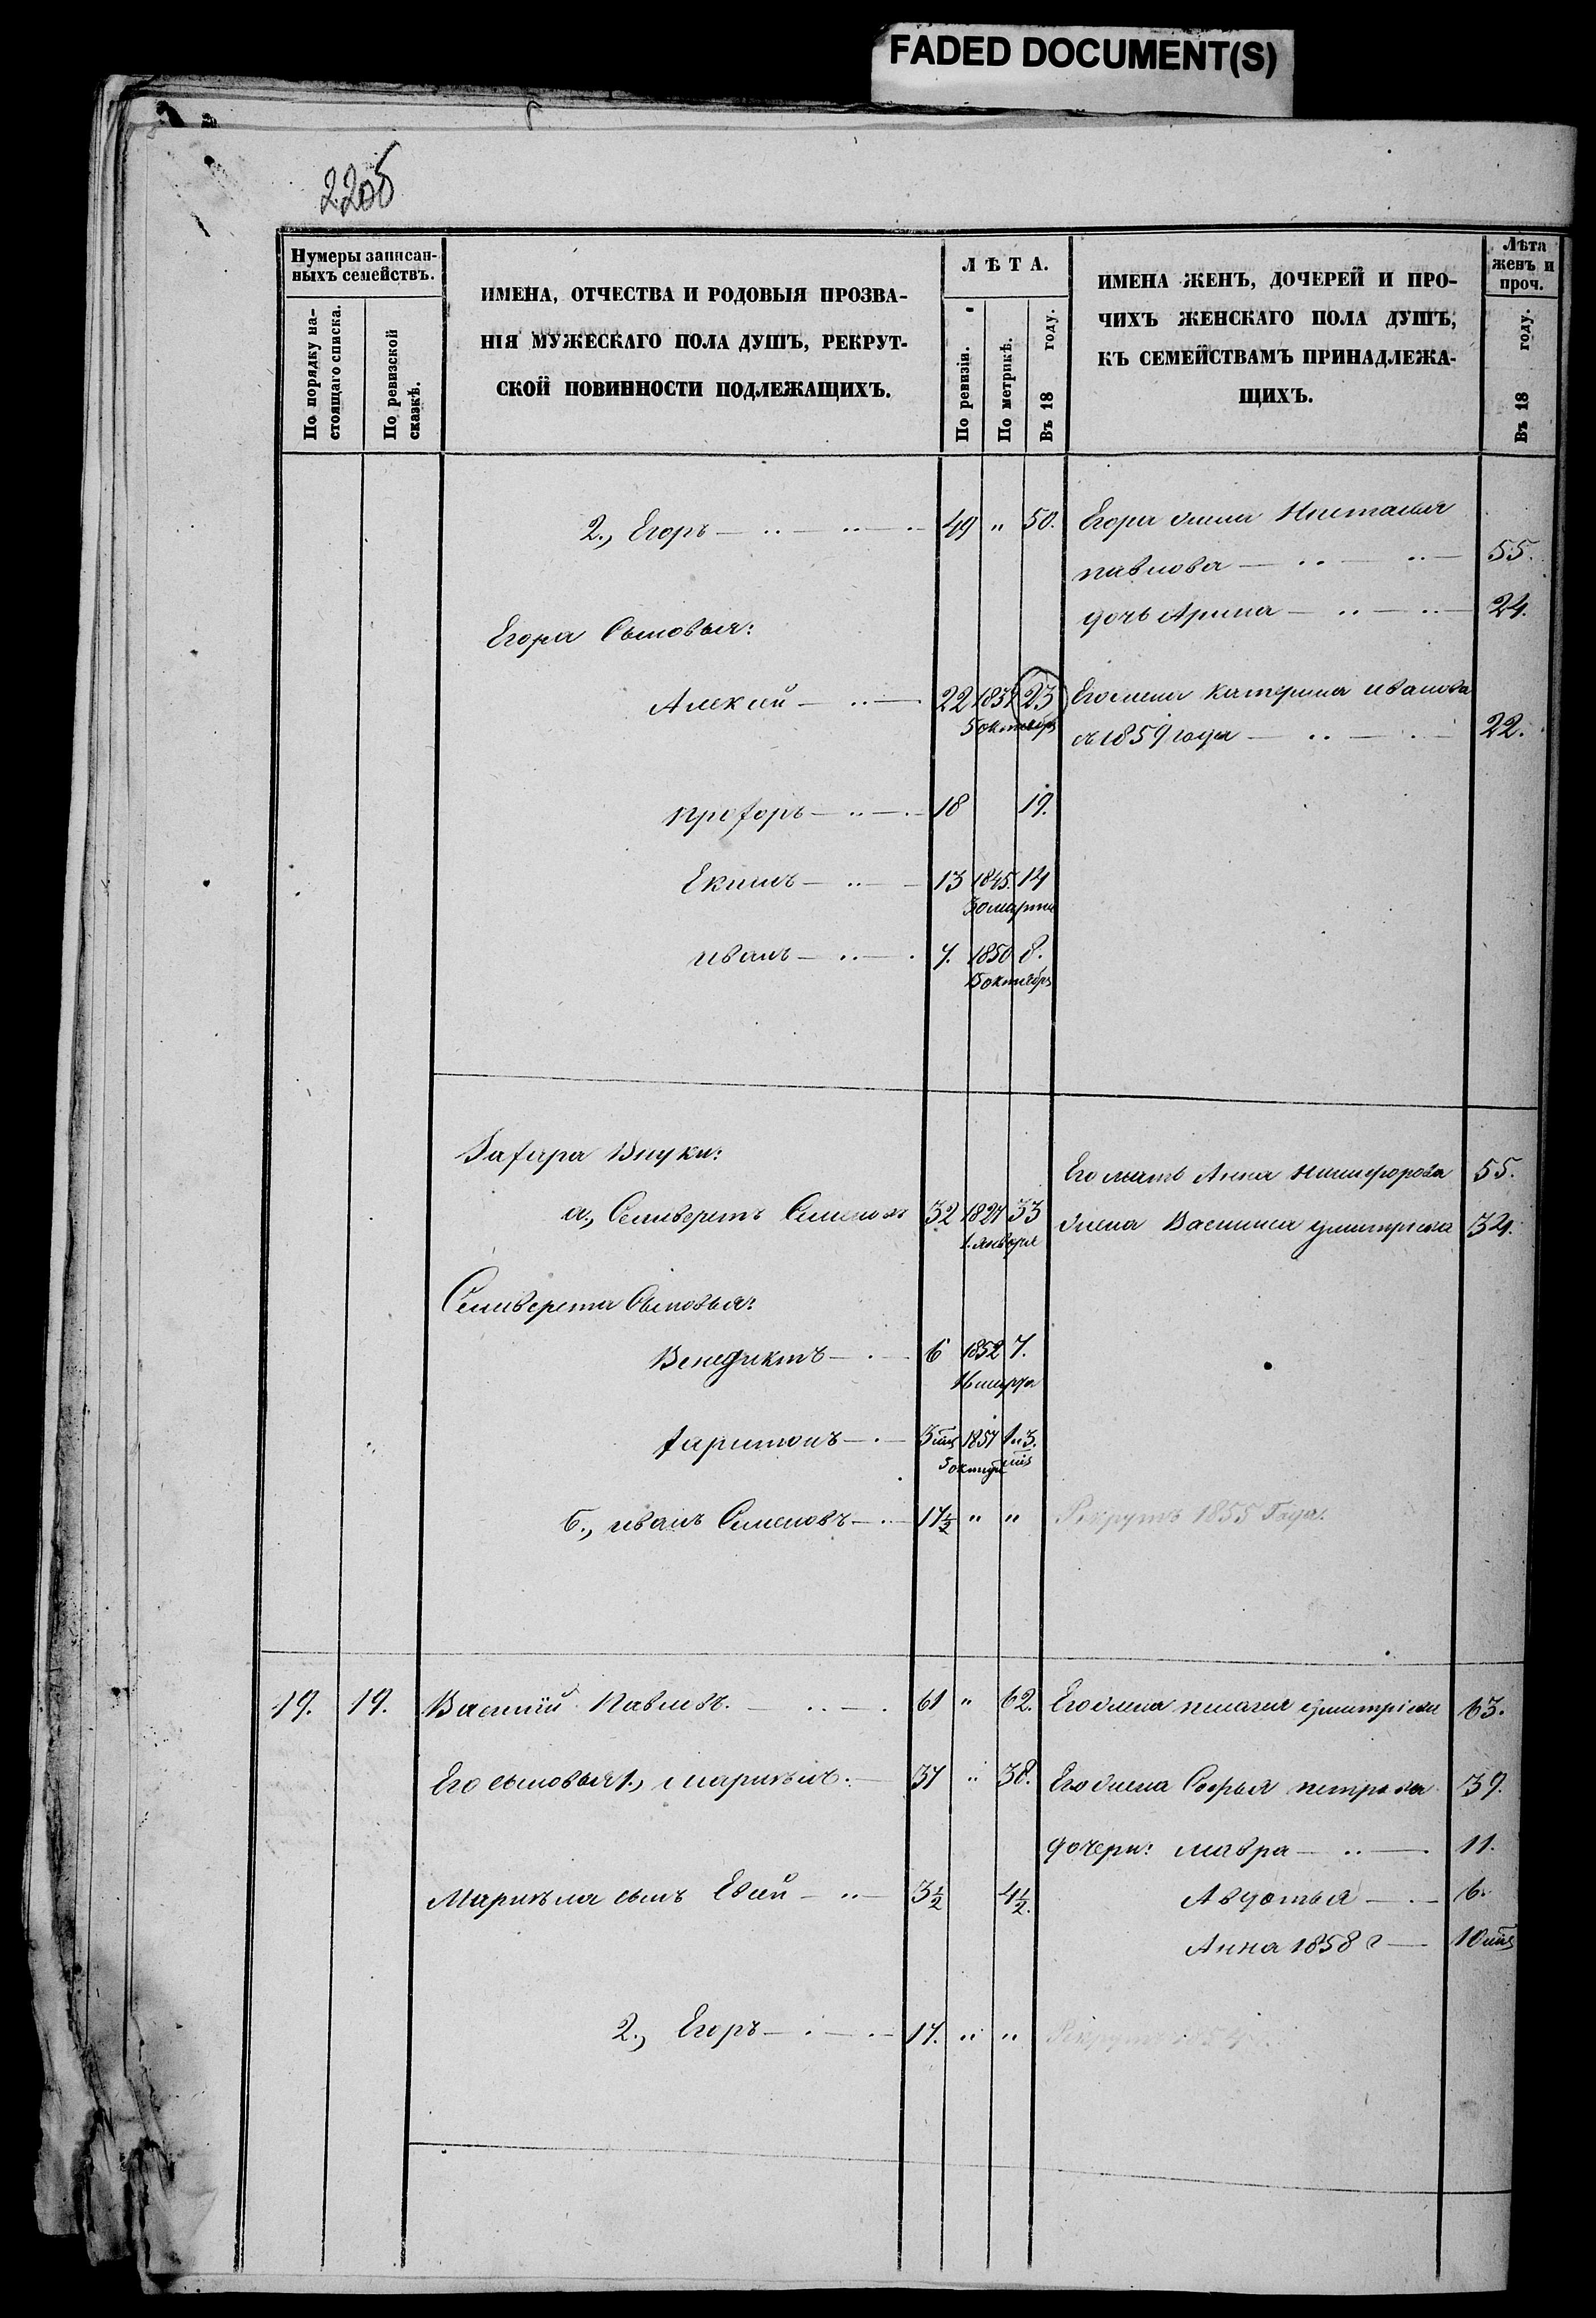 FADED DOCUMENT(S)
22об
Нумеры записан-
ныхъ семействъ.
По порядку на-
стоящаго списка.
По ревизской
сказкѣ.
ИМЕНА, ОТЧЕСТВА И РОДОВЫЯ ПРОЗВА-
НІЯ МУЖЕСКАГО ПОЛА ДУШЪ, РЕКРУТ-
СКОЙ ПОВИННОСТИ ПОДЛЕЖАЩИХЪ.
ЛѢТА.
По ревизіи.
По метрикѣ.
Въ 18 году.
ИМЕНА ЖЕНЪ, ДОЧЕРЕЙ И ПРО-
ЧИХЪ ЖЕНСКАГО ПОЛА ДУШЪ,
КЪ СЕМЕЙСТВАМЪ ПРИНАДЛЕЖА-
ЩИХЪ.
Лѣта
женъ и
проч.
Въ 18 году.
2., Егоръ — 49 " 50. Егора жена Настасья
павлова — 55.
дочь Арина — 24.
Егора Сыновья:
Алексей — 22 23 Его жена Катерина иванова
5 октябр
съ 1859 года — 22.
прохоръ — 18 19.
Екимъ — 13 1845. 14
30 марта
иванъ — 7. 1850 8.
15 октября
Захара Внуки:
Его мать Анна никифорова 55.
а., Селиверстъ Семеновъ 32 1827 33 жена Василиса дмитриева 34.
1. января
Селиверста Сыновья:
Венедиктъ — 6 1852 7.
16 марта
харитонъ — 3 мц 1857 1 и 3.
5 октяб мц
б., иванъ Семеновъ — 17½ " " Рекрутъ 1855 Года.
19. 19. Василій Павловъ. — 61 " 62. Его жена пелагея дмитріева 63.
Его сыновья 1., Марикъ — 37 " 38. Его жена Софья петрова 39.
дочери: мавра — 11.
сынъ Евсей — 3½ 4½. Авдотья — 6.
Анна 1858 г — 10 мц
2., Егоръ — 17. " " Рекрутъ 1854